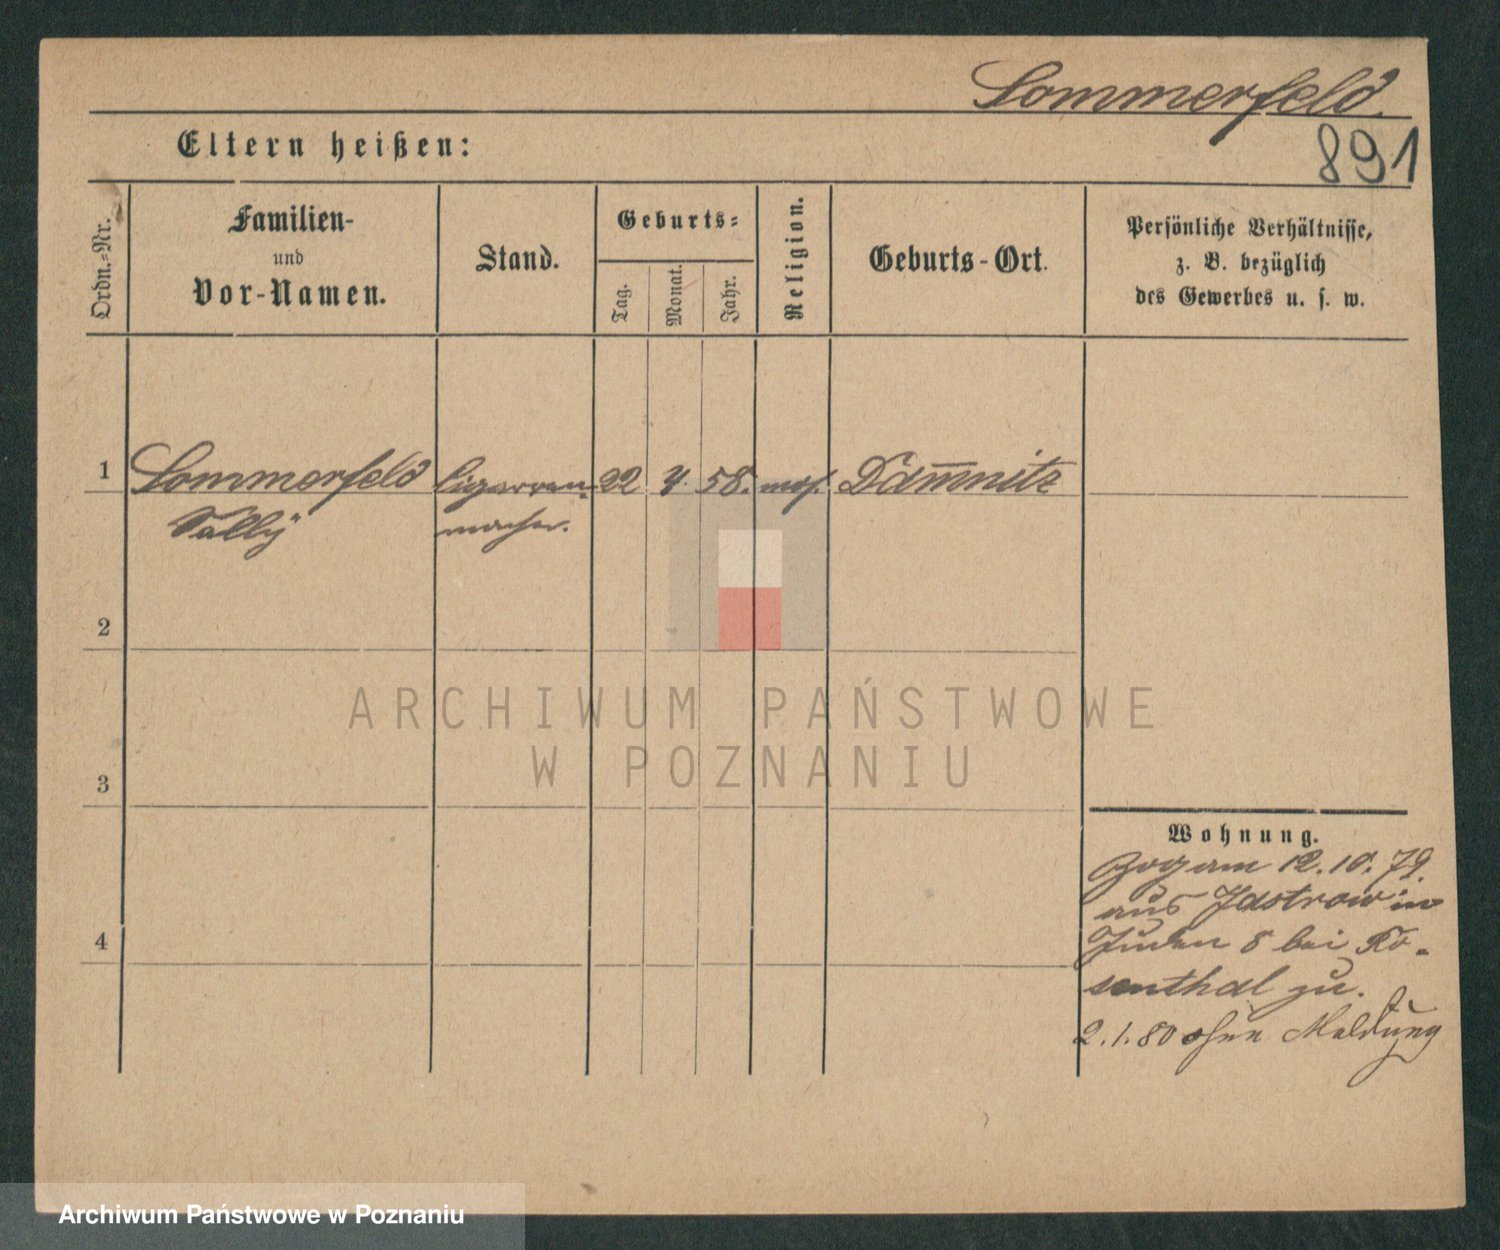 Sommerfeld.
891
Eltern heißen:
Ordn.-Nr.
Familien-
und
Vor-Namen.
Stand.
Geburts-
Tag.
Monat.
Jahr.
Religion.
Geburts-Ort.
Persönliche Verhältnisse,
z. B. bezüglich
des Gewerbes u. s. w.
1 Sommerfeld Cigarren- 22 4. 58. mos. Dammitz
Sally macher.
2
3
4
Wohnung.
Zog am 12.10.79.
aus Jastrow in
Juden 8 bei Ro-
senthal zu.
2.1.80 ohne Meldung
ARCHIWUM PAŃSTWOWE
W POZNANIU
Archiwum Państwowe w Poznaniu